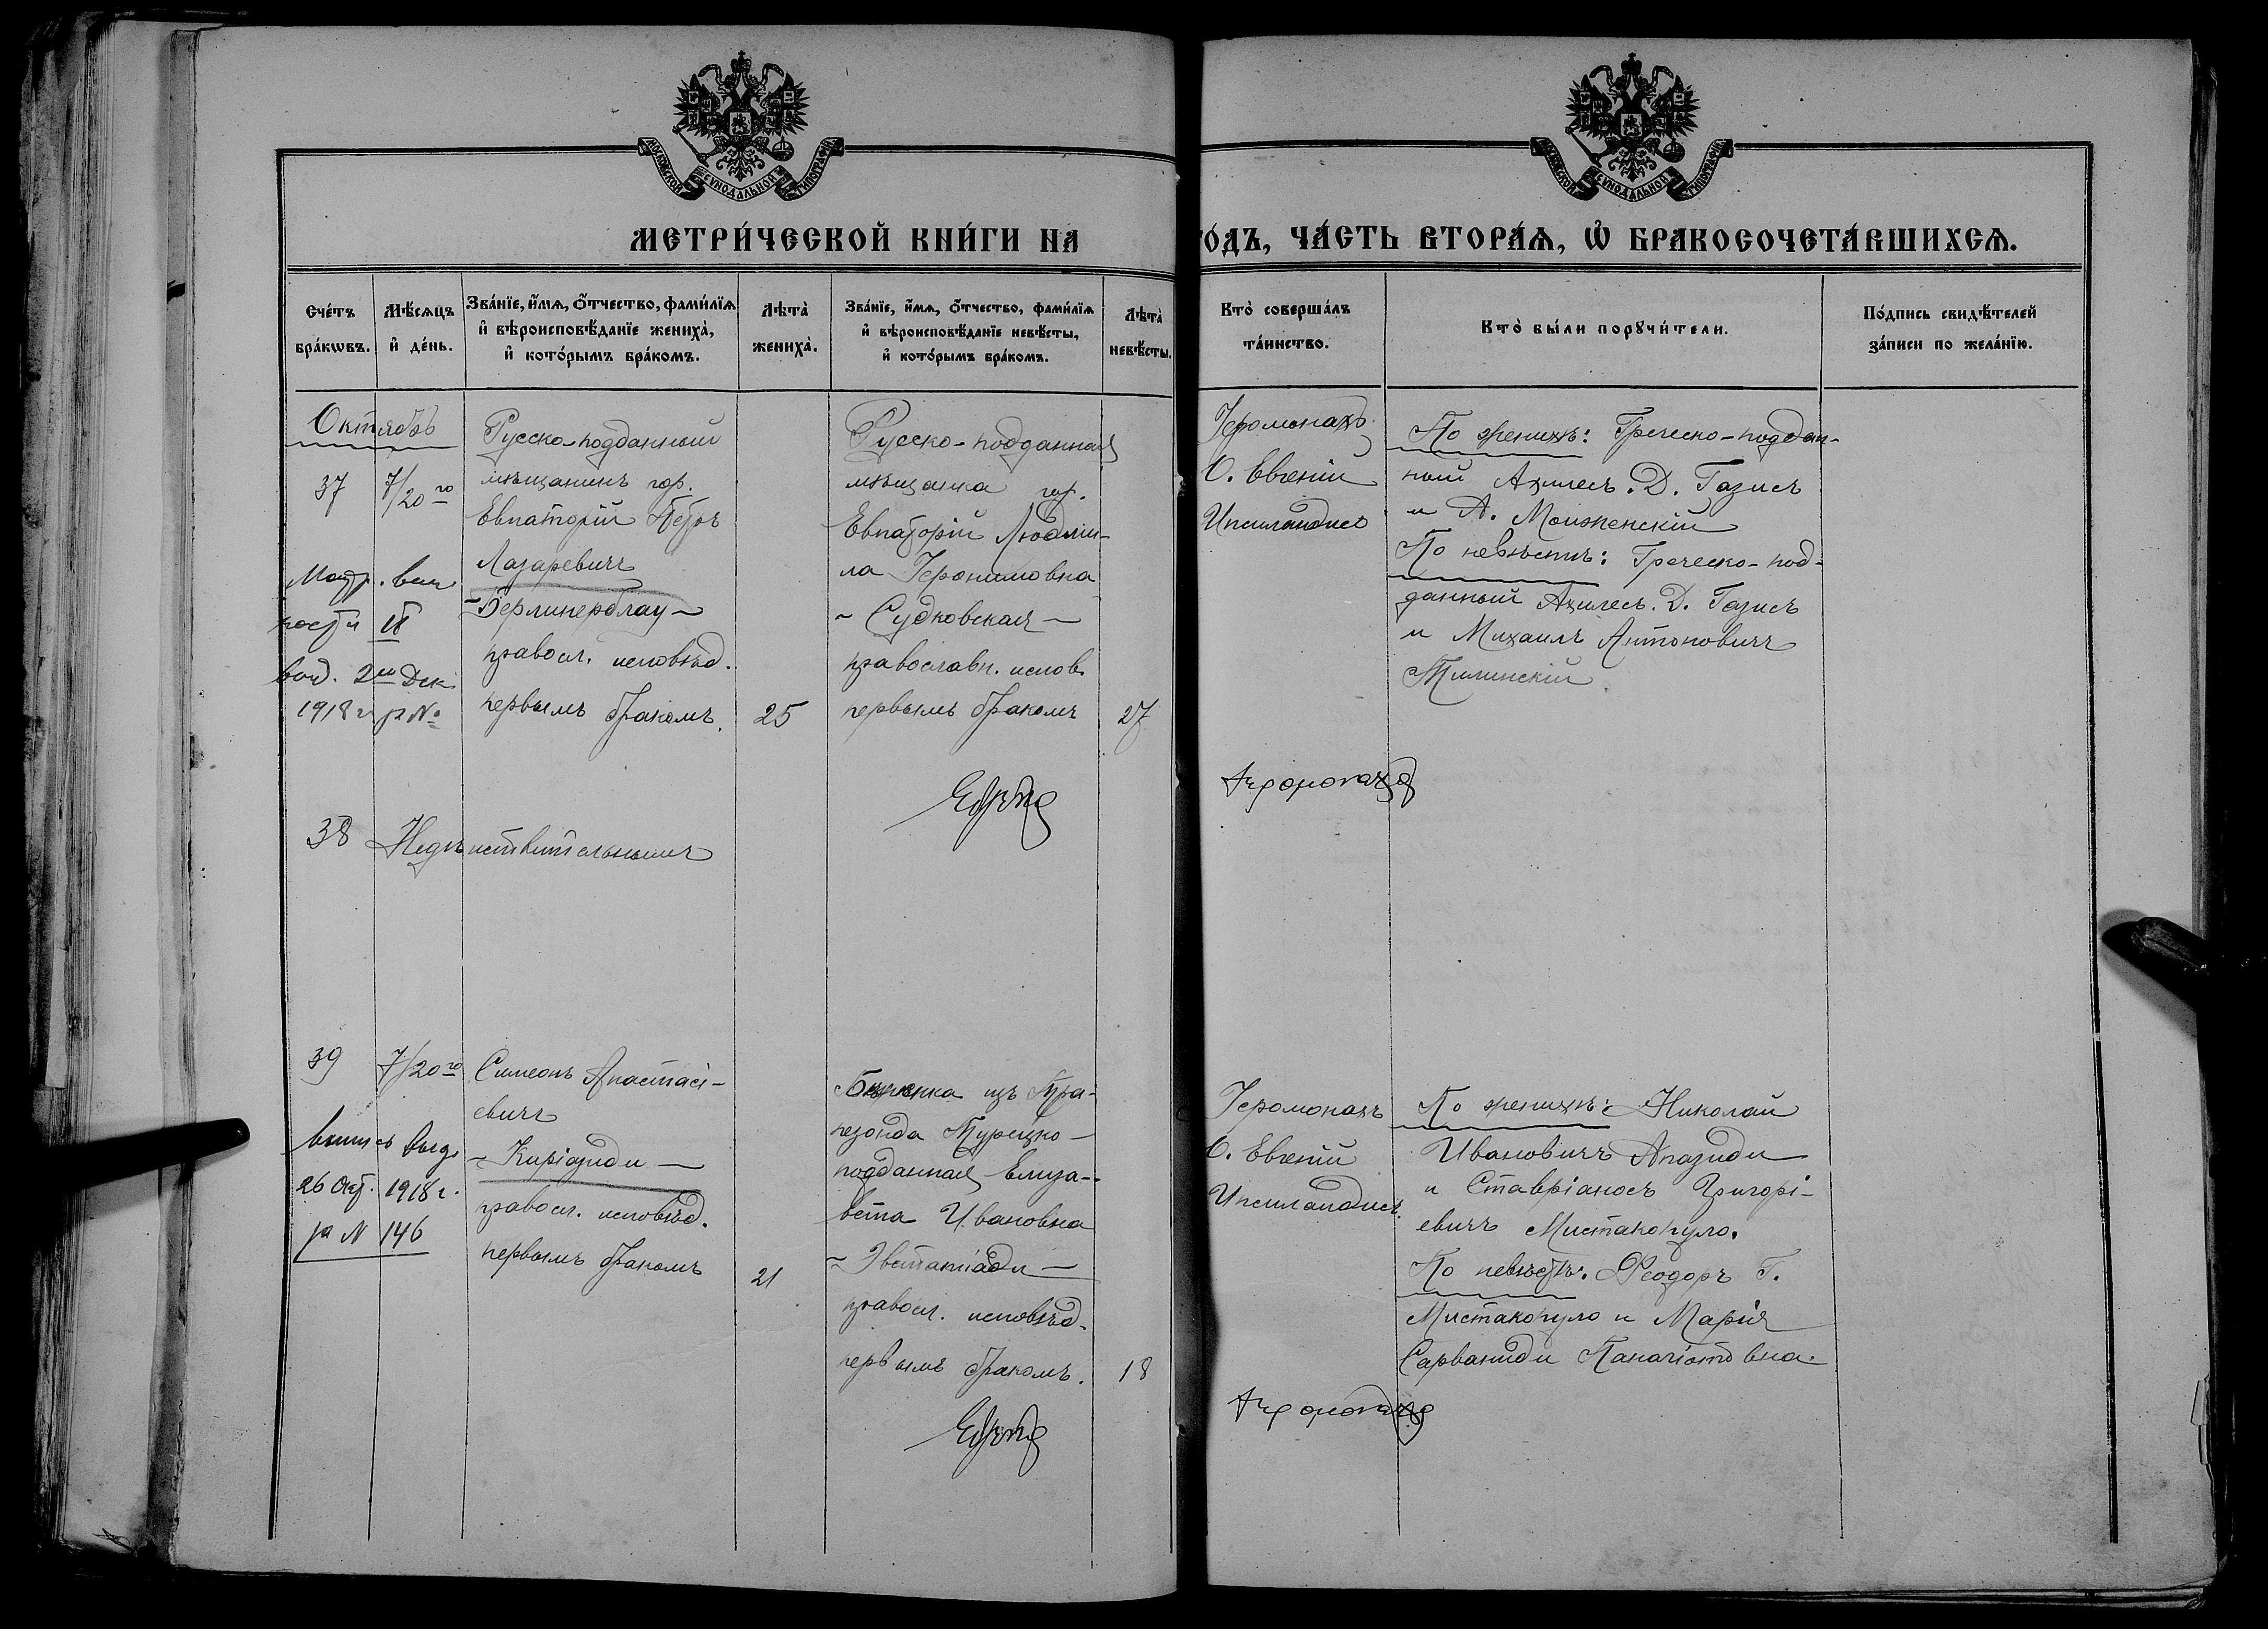 МОСКОВСКОЙ СѴНОДАЛЬНОЙ ТИПОГРАФІИ
МОСКОВСКОЙ СѴНОДАЛЬНОЙ ТИПОГРАФІИ
МЕТРИ́ЧЕСКОЙ КНИ́ГИ НА
ГО́ДЪ, ЧА́СТЬ ВТОРА́Ѧ, Ѽ БРАКОСОЧЕТА́ВШИХСѦ.
Сче́тъ
бра́кѡвъ.
Мѣ́сѧцъ
и҆ де́нь.
Зва́нїе, и҆́мѧ, ѻ҆́тчество, фами́лїѧ
и҆ вѣроисповѣ́данїе жениха̀,
и҆ кото́рымъ бра́комъ.
Лѣта̀
жениха̀.
Зва́нїе, и҆́мѧ, ѻ҆́тчество, фами́лїѧ
и҆ вѣроисповѣ́данїе невѣ́сты,
и҆ кото́рымъ бра́комъ.
Лѣта̀
невѣ́сты.
Кто̀ соверша́лъ
та́инство.
Кто̀ бы́ли порꙋчи́тели.
По́дпись свидѣ́телей
за́писи по жела́нїю.
Октябрь
37
7/20го
Русско-подданный
мѣщанинъ гор.
Евпаторіи Петръ
Лазаревичъ
~Берлинерблау~
правосл. исповѣд.
первымъ бракомъ.
25
Русско-подданная
мѣщанка гор.
Евпаторіи Людми-
ла Іеронимовна
~ Судковская ~
православн. испов.
первымъ бракомъ
27
выд. 2го Дек.
1918 г. за №
Іеромонахъ
О. Евгеній
Ипсиландисъ
По женихѣ: Греческо-поддан-
ный Ахилесъ. Д. Газисъ
и А.
По невѣстѣ: Греческо-под-
данный Ахилесъ. Д. Газисъ
и Михаилъ Антоновичъ
38 Недѣйствительнымъ
39
7/20го
Симеонъ Анастасі-
евичъ
~ Киріазиди ~
правосл. исповѣд.
первымъ бракомъ
21
выпись выд.
26 Окт. 1918 г.
за N 146
Бѣженка изъ Тра-
пезонда Турецко-
подданная Елиза-
вета Ивановна
~ Эвстатіади ~
правосл. исповѣд.
первымъ бракомъ.
18
Іеромонахъ
О. Евгеній
Ипсиландисъ.
По женихѣ: Николай
Ивановичъ Апазиди
и Ставріаносъ Григорі-
евичъ Мистакопуло.
По невѣстѣ: Ѳеодоръ Г.
Мистакопуло и Марія
Сарваниди Панагіотовна.